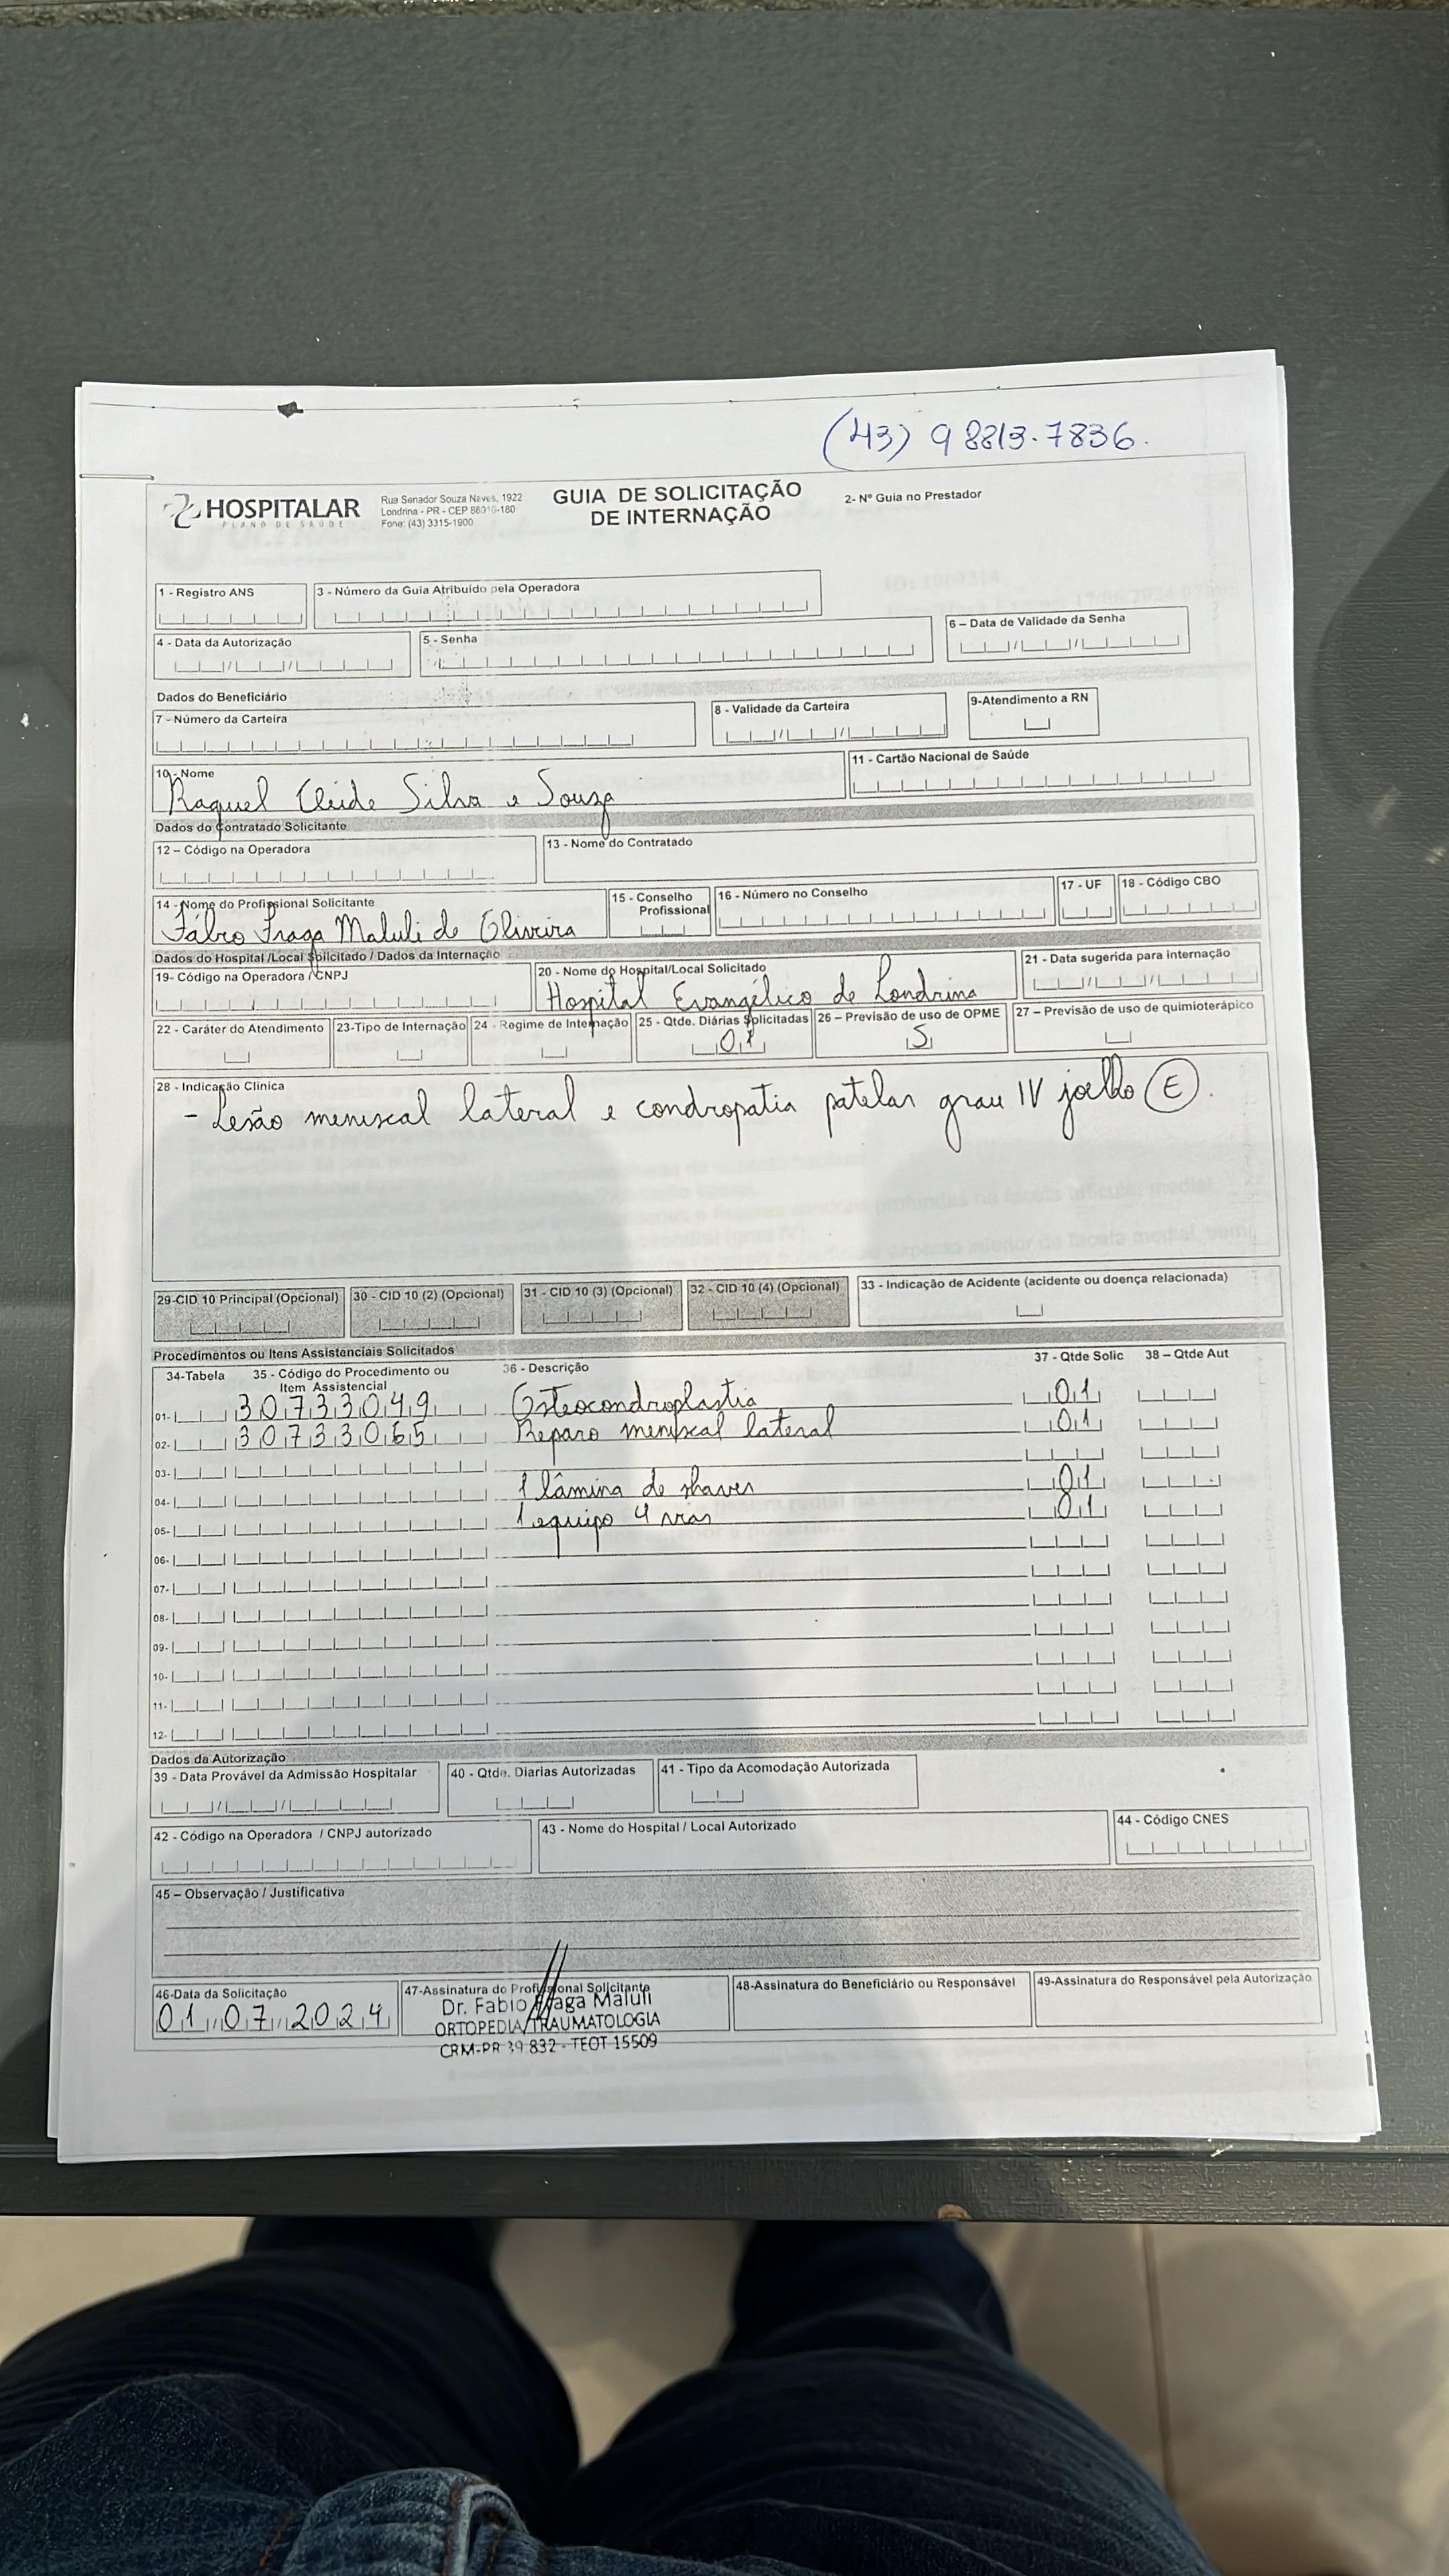 (43) 98813.7836.
HOSPITALAR
PLANO DE SAÚDE
Rua Senador Souza Naves, 1922
Londrina - PR - CEP 86010-180
Fone: (43) 3315-1900
GUIA DE SOLICITAÇÃO
DE INTERNAÇÃO
2- Nº Guia no Prestador
1 - Registro ANS
3 - Número da Guia Atribuído pela Operadora
4 - Data da Autorização
5 - Senha
6 – Data de Validade da Senha
Dados do Beneficiário
7 - Número da Carteira
8 - Validade da Carteira
9-Atendimento a RN
10 - Nome
Raquel Cleide Silva e Souza
11 - Cartão Nacional de Saúde
Dados do Contratado Solicitante
12 – Código na Operadora
13 - Nome do Contratado
14 - Nome do Profissional Solicitante
Fábio Fraga Maluli de Oliveira
15 - Conselho Profissional
16 - Número no Conselho
17 - UF
18 - Código CBO
Dados do Hospital /Local Solicitado / Dados da Internação
19- Código na Operadora / CNPJ
20 - Nome do Hospital/Local Solicitado
Hospital Evangélico de Londrina
21 - Data sugerida para internação
22 - Caráter do Atendimento
23-Tipo de Internação
24 - Regime de Internação
25 - Qtde. Diárias Solicitadas
01
26 – Previsão de uso de OPME
S
27 – Previsão de uso de quimioterápico
28 - Indicação Clinica
- Lesão meniscal lateral e condropatia patelar grau IV joelho (E).
29-CID 10 Principal (Opcional)
30 - CID 10 (2) (Opcional)
31 - CID 10 (3) (Opcional)
32 - CID 10 (4) (Opcional)
33 - Indicação de Acidente (acidente ou doença relacionada)
Procedimentos ou Itens Assistenciais Solicitados
34-Tabela 35 - Código do Procedimento ou Item Assistencial 36 - Descrição 37 - Qtde Solic 38 – Qtde Aut
01- 30733049 Osteocondroplastia 01
02- 30733065 Reparo meniscal lateral 01
03-
04- 1 lâmina de shaver 01
05- 1 equipo 4 vias 01
06-
07-
08-
09-
10-
11-
12-
Dados da Autorização
39 - Data Provável da Admissão Hospitalar
40 - Qtde. Diarias Autorizadas
41 - Tipo da Acomodação Autorizada
42 - Código na Operadora / CNPJ autorizado
43 - Nome do Hospital / Local Autorizado
44 - Código CNES
45 – Observação / Justificativa
46-Data da Solicitação
01 07 2024
47-Assinatura do Profissional Solicitante
Dr. Fabio Fraga Maluli
ORTOPEDIA/TRAUMATOLOGIA
CRM-PR 39 832 - TEOT 15509
48-Assinatura do Beneficiário ou Responsável
49-Assinatura do Responsável pela Autorização